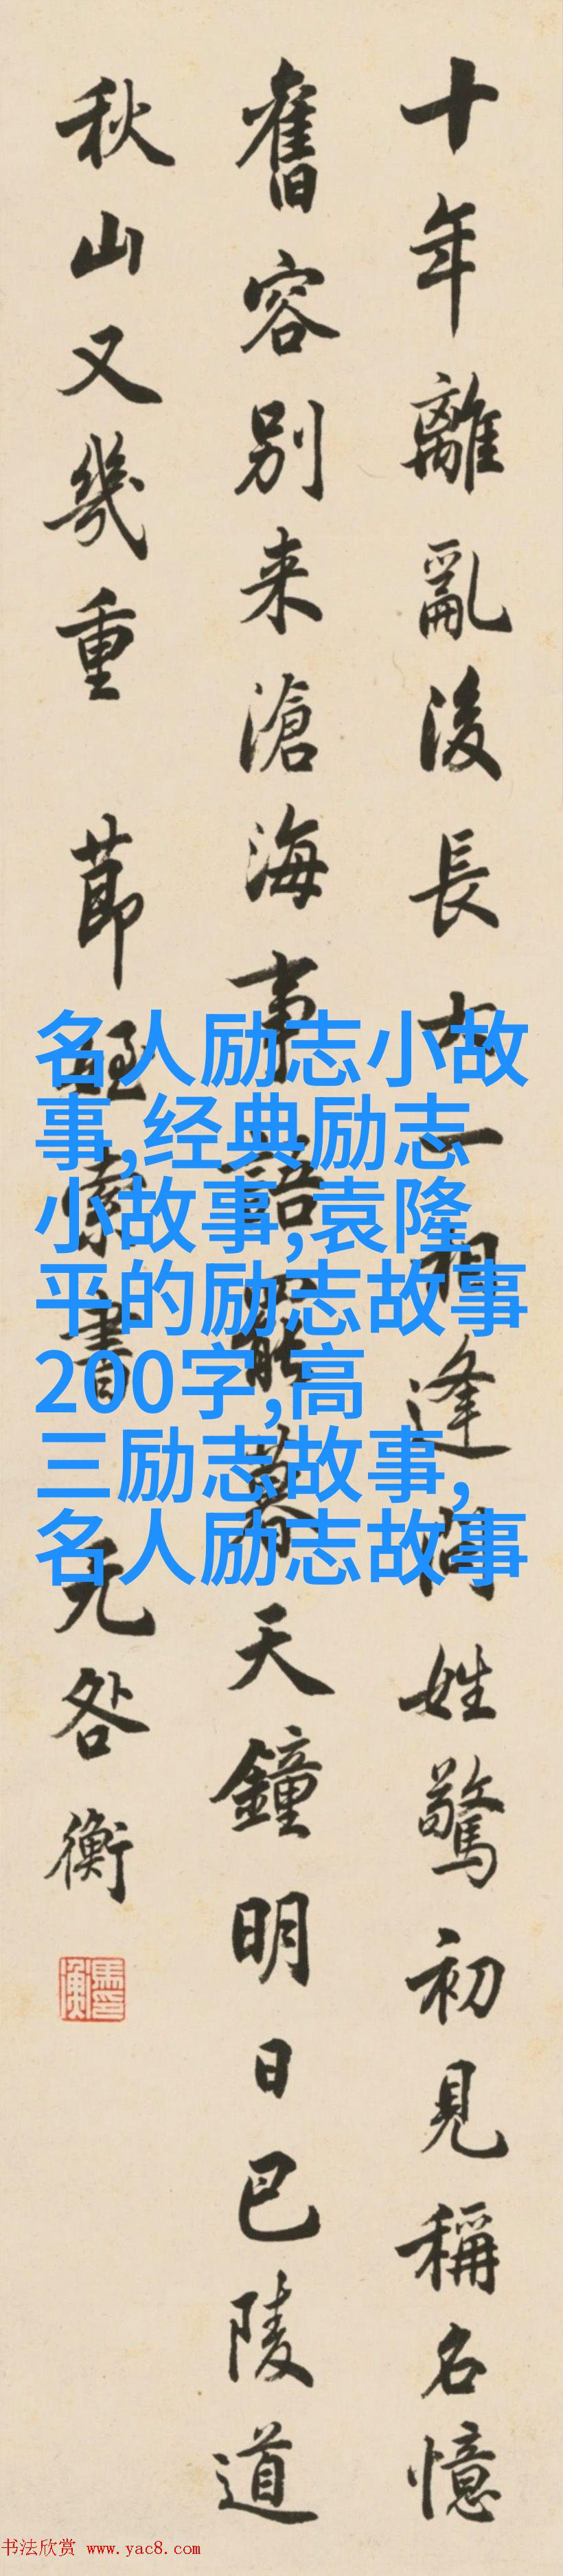 十年離亂後長大一相逢問姓驚初見稱名憶
舊容別来滄海事語罷暮天鐘明日巴陵道
秋山又幾重 莭索書 无咎衡
馬衡印
名人励志小故
事,经典励志
小故事,袁隆
平的励志故事
200字,高
三励志故事,
名人励志故事
书法欣赏 www.yac8.com